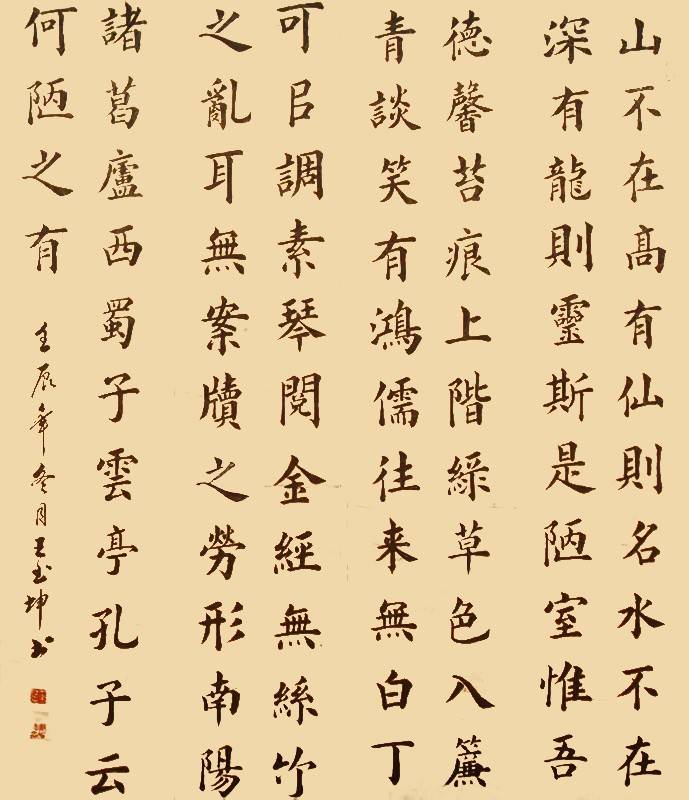 山不在髙有仙則名水不在
深有龍則靈斯是陋室惟吾
德馨苔痕上階綠草色入簾
青談笑有鴻儒往来無白丁
可㠯調素琴閱金經無絲竹
之亂耳無案牘之勞形南陽
諸葛廬西蜀子雲亭孔子云
何陋之有
壬辰年冬月王玉坤书